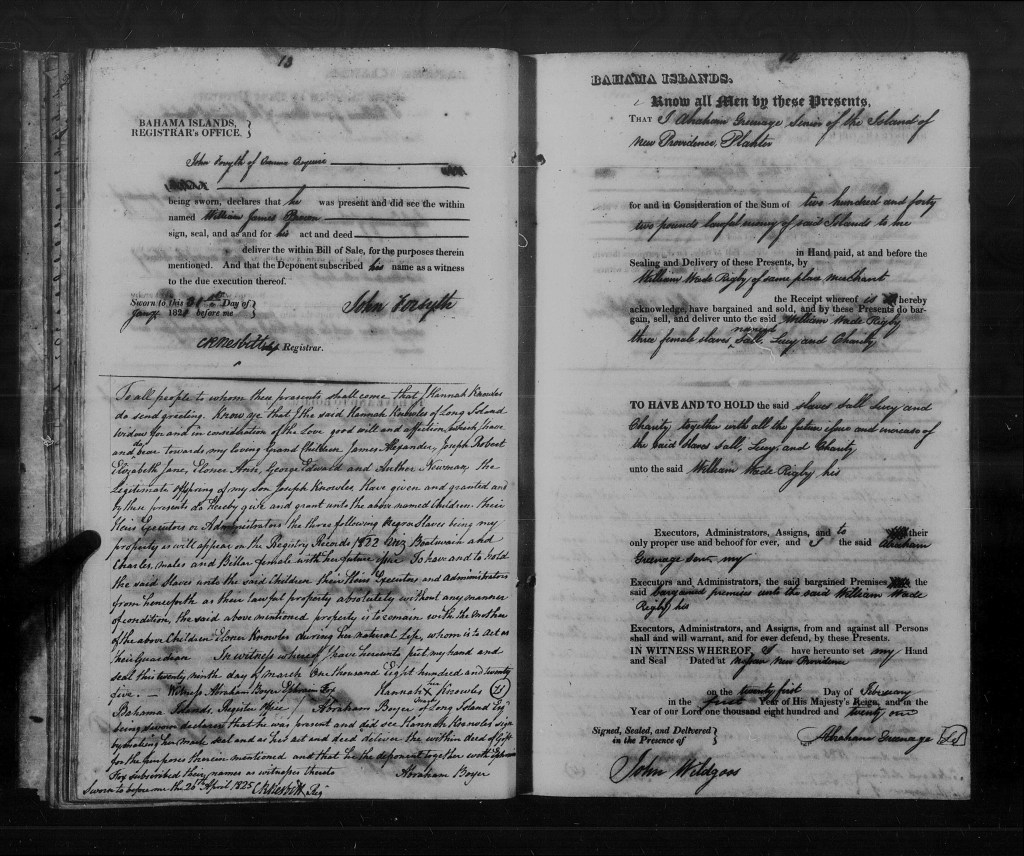 13
BAHAMA ISLANDS,
REGISTRAR's OFFICE.
John Forsyth of Esquire
being sworn, declares that he was present and did see the within
named William James
sign, seal, and as and for his act and deed
deliver the within Bill of Sale, for the purposes therein
mentioned. And that the Deponent subscribed his name as a witness
to the due execution thereof.
Sworn to this 31st Day of
Jany. 182 before me
John Forsyth
CRNesbitt Registrar.
To all people to whom these presents shall come that I Hannah Knowles
do send greeting. Know ye that I the said Hannah Knowles of Long Island
Widow for and in consideration of the Love good will and affection which I have
and do bear towards my loving Grand Children James Alexander, Joseph Robert
Elizabeth Jane, Eloner Ann, George Edward and Author Newman, the
Legitimate offspring of my Son Joseph Knowles, Have given and granted and
by these presents do hereby give and grant unto the above named Children their
Heirs Executors or Administrators the three following Negroe Slaves being my
property as will appear on the Registry Records 1822 Viz Boatswain and
Charles, males and Bellar female with her future To have and to hold
the said Slaves unto the said Children their Heirs Executors and administrators
from henceforth as their lawful property absolutely without any manner
of condition, the said above mentioned property is to remain with the mother
of the above Children Eloner Knowles during her natural Life, whom is to act as
their Guardian In witness whereof I have hereunto put my hand and
seal this twenty ninth day of March One thousand Eight hundred and twenty
five. — Witness Abraham Boyer Ephraim Fox Hannah her X mark Knowles LS
Bahama Islands, Register Office Abraham Boyer of Long Island Esqr
being sworn declares that he was present and did see Hannah Knowles sign
by making her mark seal and as her act and deed deliver the within deed of Gift
for the purposes therein mentioned and that he the deponent together with Ephraim
Fox subscribed their names as witnesses thereto
Abraham Boyer
Sworn to before me the 26th April 1825 CRNesbitt Reg
14
BAHAMA ISLANDS.
Know all Men by these Presents,
THAT I Abraham Greenage Senior of the Island of
New Providence, Planter
for and in Consideration of the Sum of two hundred and forty
two pounds lawful money of said Islands to me
in Hand paid, at and before the
Sealing and Delivery of these Presents, by
William Wade Rigby of same place merchant
the Receipt whereof is hereby
acknowledge, have bargained and sold, and by these Presents do bar-
gain, sell, and deliver unto the said William Wade Rigby
three female slaves, named Sall, Lucy and Charity
TO HAVE AND TO HOLD the said slaves Sall Lucy and
Charity together with all the future issue and increase of
the said slaves Sall, Lucy, and Charity
unto the said William Wade Rigby, his
Executors, Administrators, Assigns, and to their
only proper use and behoof for ever, and I the said Abraham
Greenage Senr. my
Executors and Administrators, the said bargained Premises the
said bargained premises unto the said William Wade
Rigby his
Executors, Administrators, and Assigns, from and against all Persons
shall and will warrant, and for ever defend, by these Presents.
IN WITNESS WHEREOF, I have hereunto set my Hand
and Seal Dated at Nassau New Providence
on the twenty first Day of February
in the first Year of His Majesty's Reign, and in the
Year of our Lord one thousand eight hundred and twenty one
Signed, Sealed, and Delivered
in the Presence of
Abraham Greenage LS
John Wildgoos